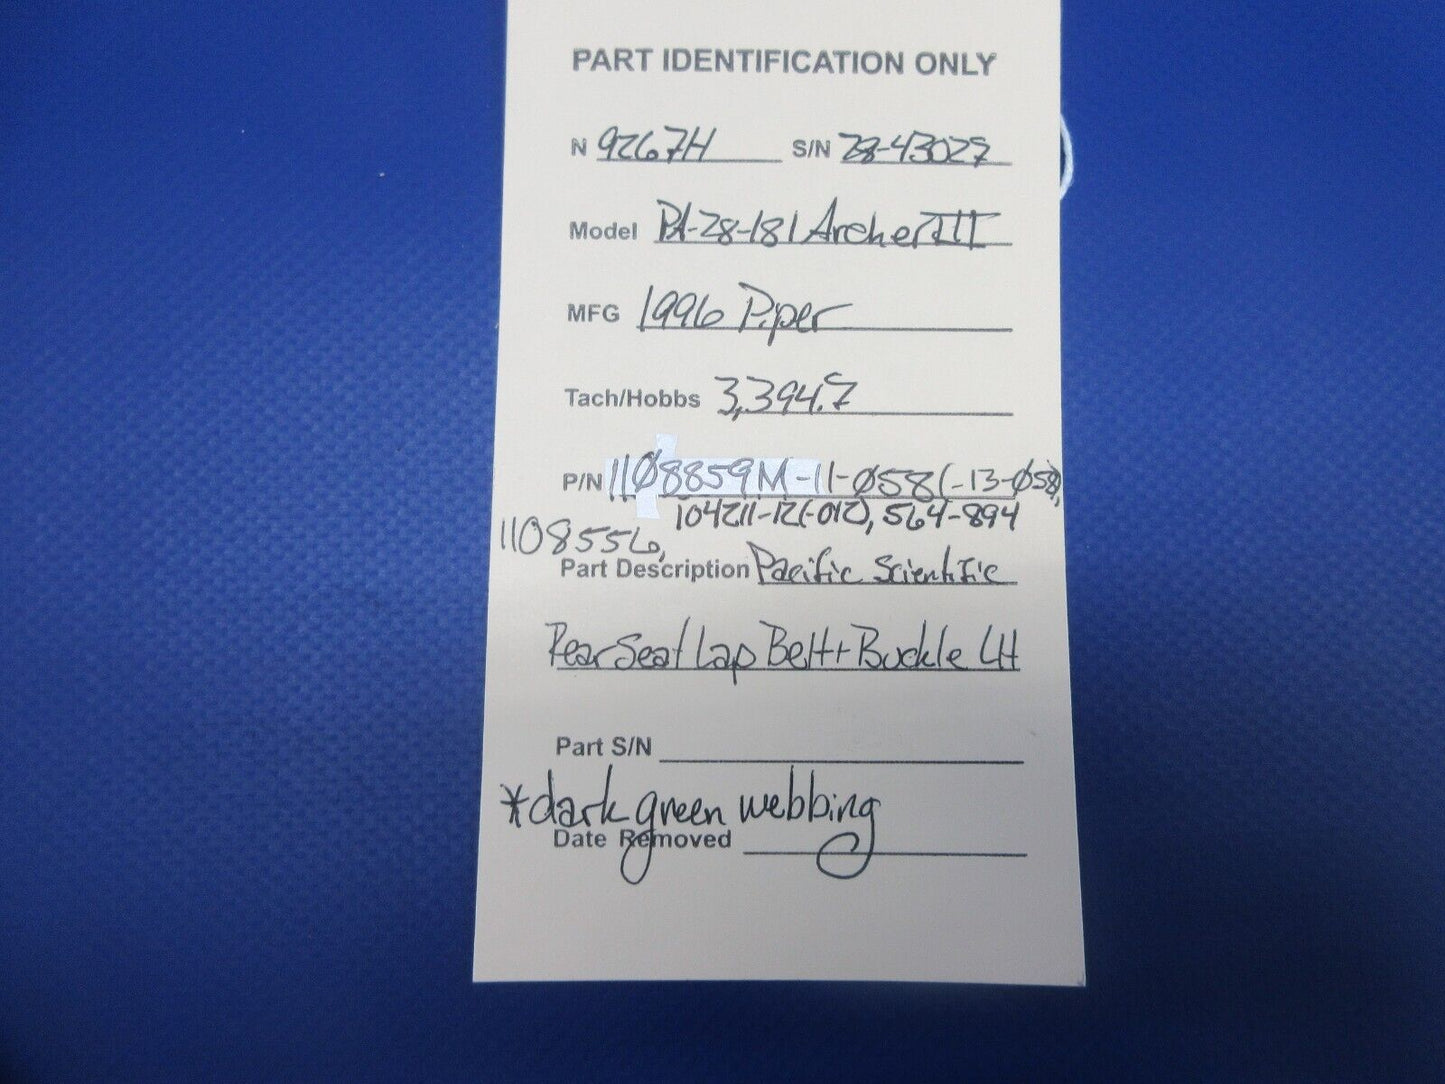 PART IDENTIFICATION ONLY
N 9267H S/N 28-43027
Model PA-28-181 Archer III
MFG 1996 Piper
Tach/Hobbs 3,394.7
P/N 11Ø8859M-11-Ø58(-13-Ø58),
104211-12(-012), 564-894
1108556,
Part Description Pacific Scientific
Rear Seat Lap Belt + Buckle LH
Part S/N
*dark green webbing
Date Removed